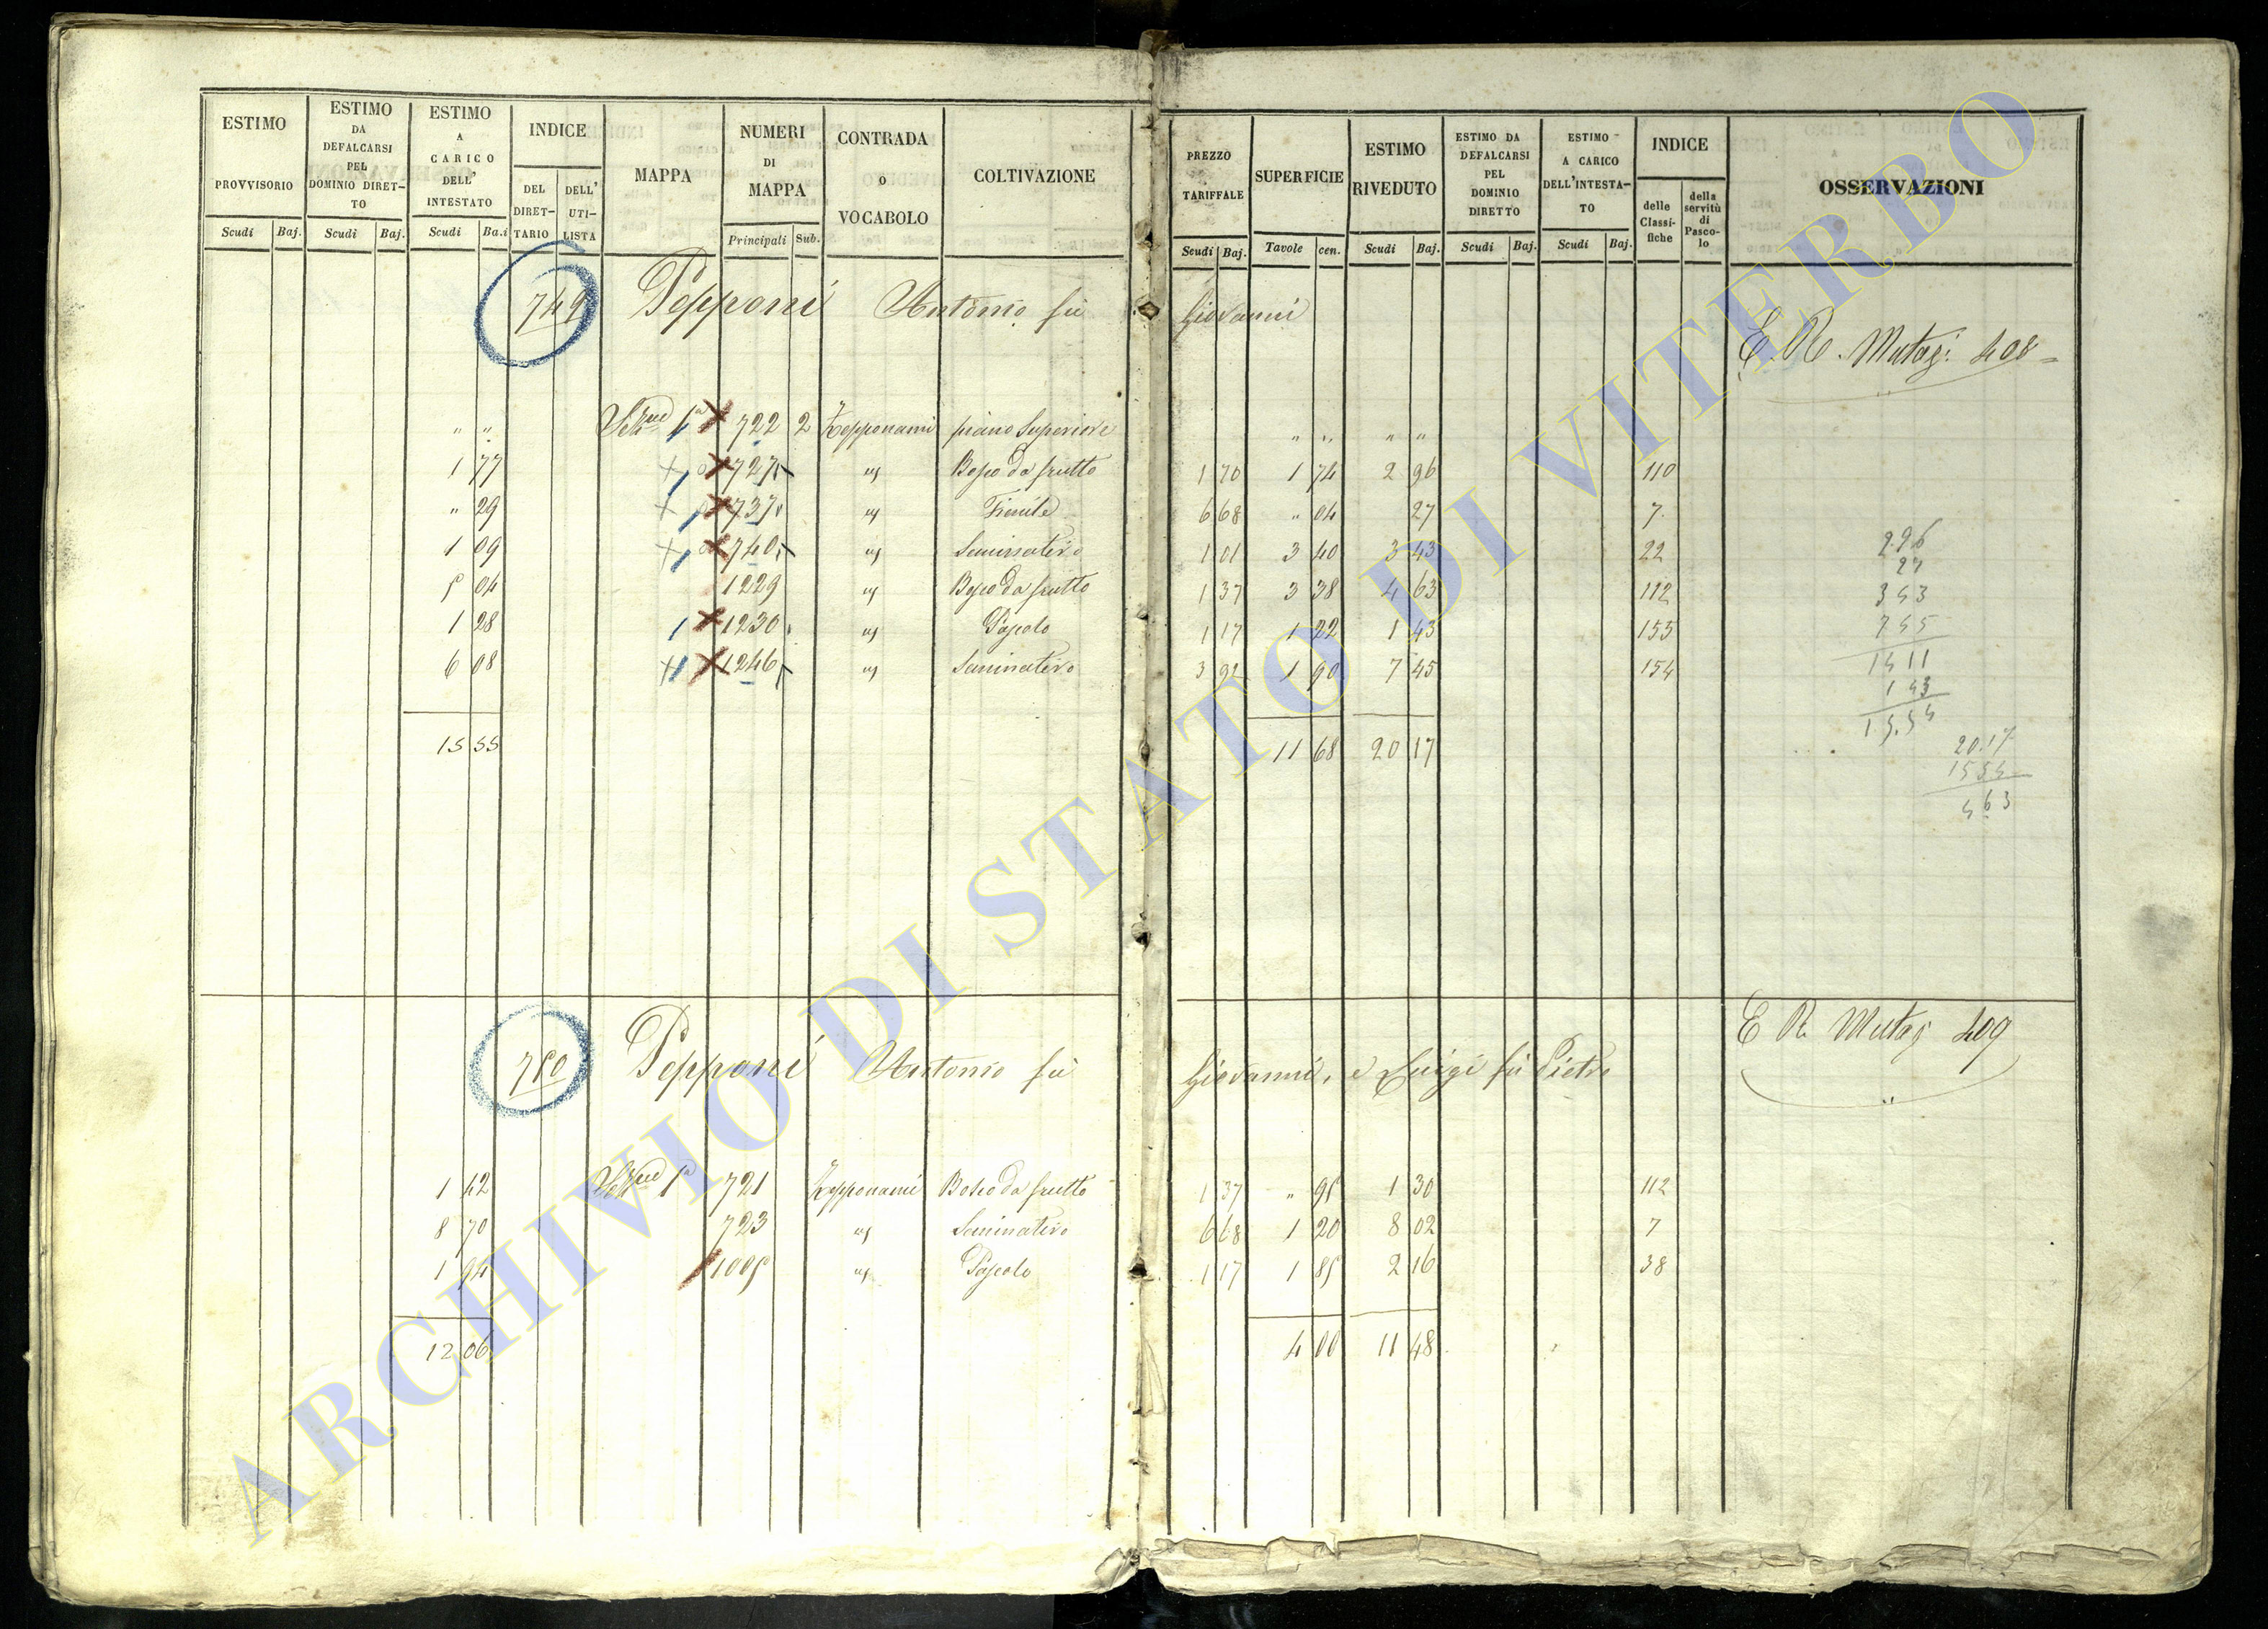 ESTIMO PROVVISORIO
Scudi Baj.
ESTIMO DA DEFALCARSI PEL DOMINIO DIRET-TO
Scudi Baj.
ESTIMO A CARICO DELL' INTESTATO
Scudi Ba.i
INDICE
DEL DIRET-TARIO
DELL' UTI-LISTA
MAPPA
NUMERI DI MAPPA
Principali Sub.
CONTRADA O VOCABOLO
COLTIVAZIONE
PREZZO TARIFFALE
Scudi Baj.
SUPERFICIE
Tavole cen.
ESTIMO RIVEDUTO
Scudi Baj.
ESTIMO DA DEFALCARSI PEL DOMINIO DIRETTO
Scudi Baj.
ESTIMO A CARICO DELL'INTESTA-TO
Scudi Baj.
INDICE
delle Classi-fiche
della servitù di Pasco-lo
OSSERVAZIONI
749 Pepponi Antonio fù Giovanni
E. R. Mutaz: 408
" " 1a 722 2 Zepponami piano superiore " " " "
1 77 727 Bosco da frutto 1 70 1 74 2 96 110
" 29 737 6 68 " 04 27 7
1 09 740 Seminativo 1 01 3 40 3 43 22
5 04 1229 Bosco da frutto 1 37 3 38 4 63 112
1 28 1230 Pascolo 1 17 1 22 1 43 155
6 08 1246 Seminativo 3 92 1 90 7 45 154
15 55 11 68 20 17
2 96
27
3 43
7 45
14 11
1 43
15.54
20.17
15 54
4 63
750 Pepponi Antonio fù Giovanni, e Luigi fù Pietro
E R Mutaz 409
1 42 1a 721 Zepponami Bosco da frutto 1 37 " 95 1 30 112
8 70 723 Seminativo 6 68 1 20 8 02 7
1 94 1005 Pascolo 1 17 1 85 2 16 38
12 06 4 00 11 48
ARCHIVIO DI STATO DI VITERBO